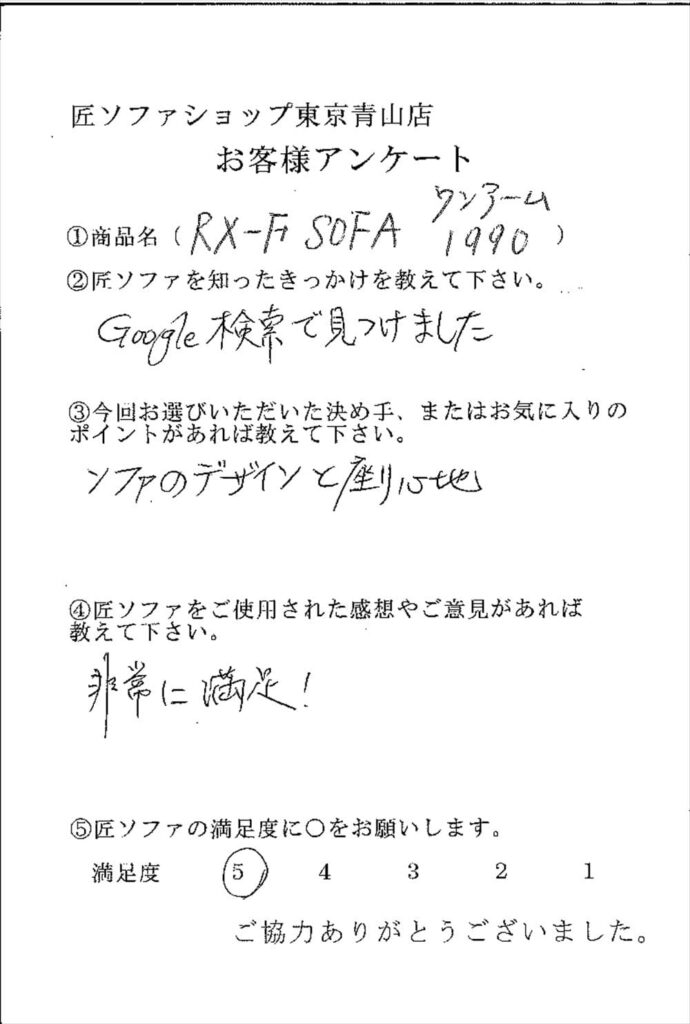 匠ソファショップ東京青山店
お客様アンケート
ワンアーム
①商品名（ RX-Fi SOFA 1990 ）
②匠ソファを知ったきっかけを教えて下さい。
Google検索で見つけました
③今回お選びいただいた決め手、またはお気に入りの
ポイントがあれば教えて下さい。
ソファのデザインと座り心地
④匠ソファをご使用された感想やご意見があれば
教えて下さい。
非常に満足！
⑤匠ソファの満足度に〇をお願いします。
満足度 5 4 3 2 1
ご協力ありがとうございました。